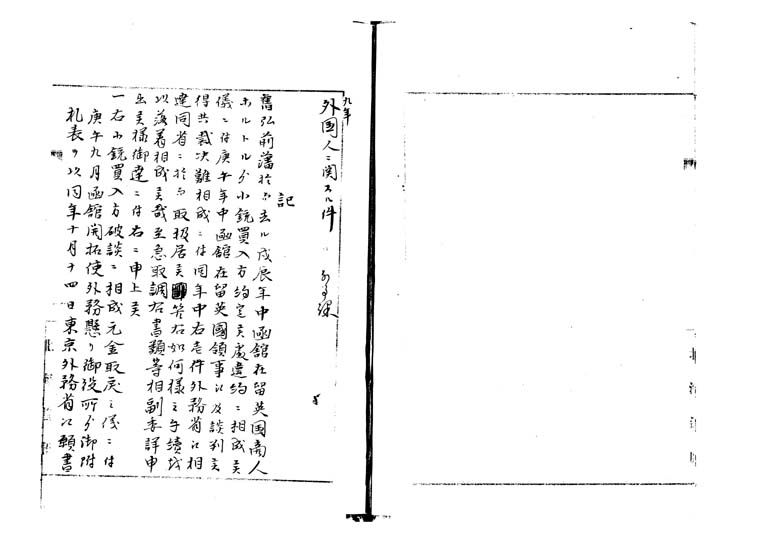 九年
外国人ニ関スル件
記
舊弘前藩於テ去ル戊辰年中函館在留英国商人
ホルトルゟ小銃買入方約定候處遣約ニ相成候
儀ニ付庚午年中函館在留英國領事江及談判候
得共裁决難相成ニ付同年中右志件外務省江相
達同省ニ於テ取扱居候 答右如何様之手續
以落着相成候哉至急取調右書類等相副委詳申
出候様御達ニ付右ニ申上候
一右小銃買入方破談ニ相成元金取戻之儀ニ付
庚午九月函館開拓使外務懸り御役所ゟ御附
札表ヲ以同年十月十四日東京外務省江願書